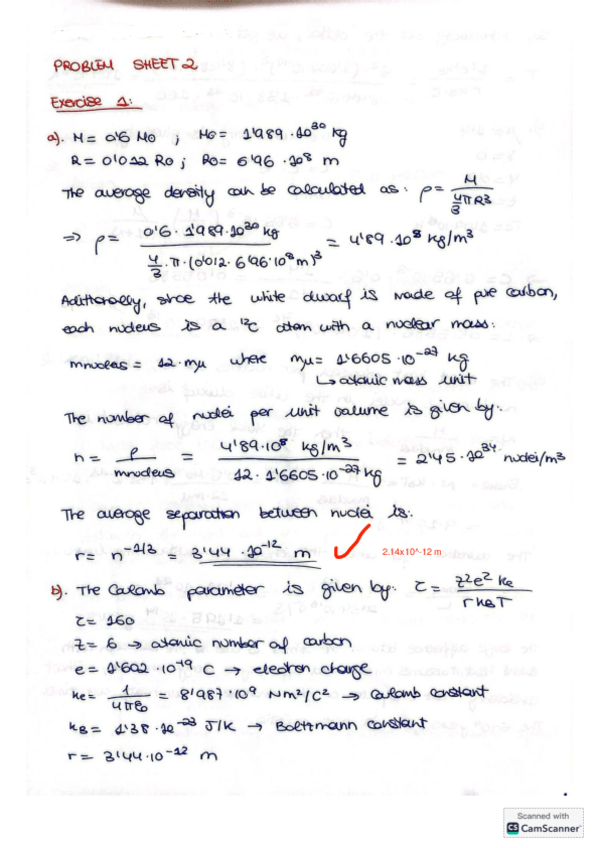 PROBLEM SHEET 2
Exercise 1:
a). M = 0'6 M⊙ ; M⊙ = 1'989 · 10^30 kg
R = 0'012 R⊙ ; R⊙ = 6'96 · 10^8 m
The average density can be calculated as: ρ = M / (4/3 π R^3)
=> ρ = 0'6 · 1'989 · 10^30 kg / (4/3 · π · (0'012 · 6'96 · 10^8 m)^3) = 4'89 · 10^8 kg/m^3
Aditionally, since the white dwarf is made of pure carbon,
each nucleus is a ^12C atom with a nuclear mass:
mnucleus = 12 · mμ where mμ = 1'6605 · 10^-27 kg
↳ atomic mass unit
The number of nuclei per unit volume is given by:
n = ρ / mnucleus = 4'89 · 10^8 kg/m^3 / (12 · 1'6605 · 10^-27 kg) = 2'45 · 10^34 nuclei/m^3
The average separation between nuclei is:
r = n^-1/3 = 3'44 · 10^-12 m ✓ 2.14x10^-12 m
b). The Coulomb parameter is given by: τ = z^2 e^2 ke / (r kB T)
τ = 160
z = 6 → atomic number of carbon
e = 1'602 · 10^-19 C → electron charge
ke = 1 / (4πε0) = 8'987 · 10^9 Nm^2/C^2 → Coulomb constant
kB = 1'38 · 10^-23 J/K → Boltzmann constant
r = 3'44 · 10^-12 m
Scanned with
CS CamScanner